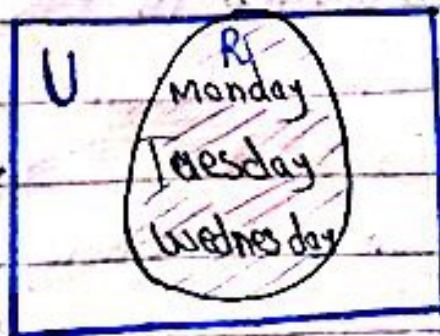 U
R
Monday
Tuesday
Wednesday